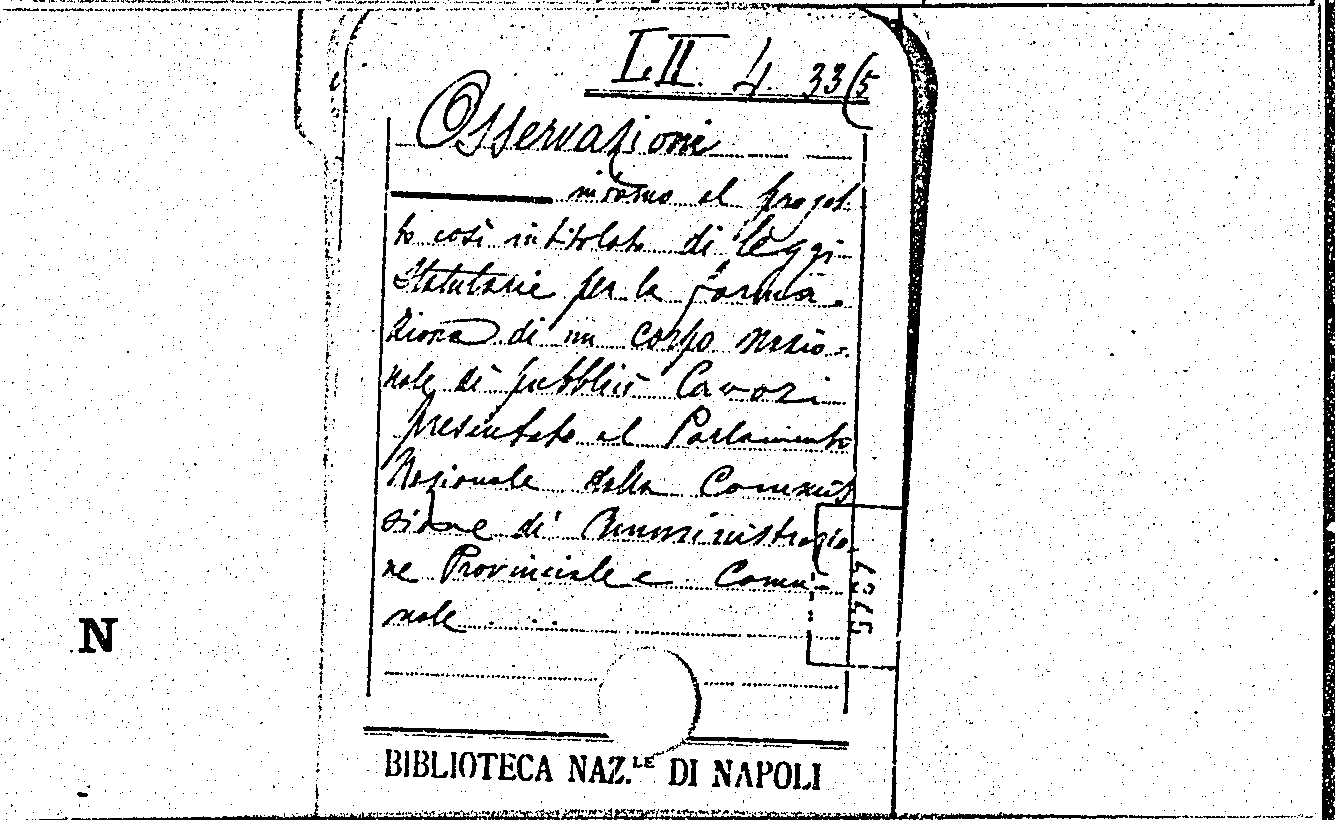 L.II. 4. 33(5
Osservazioni
intorno al proget
to così intitolato di leggi
Statutarie per la forma
zione di un corpo nazio=
nale di pubblici Lavori
presentato al Parlamento
Nazionale dalla Commis
sione di Amministrazio
ne Provinciale e Comu=
nale . . .
5757
N
BIBLIOTECA NAZ.LE DI NAPOLI